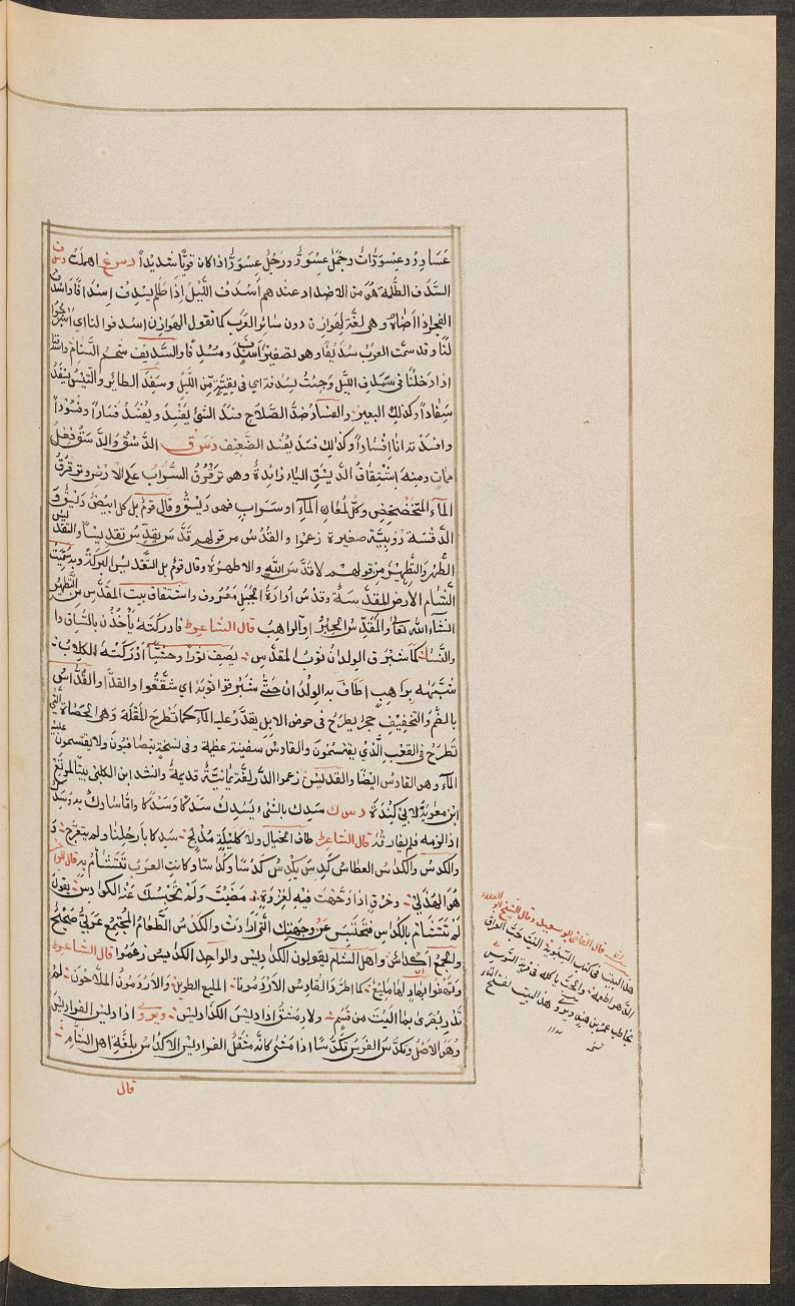 عساود وعسودات وجمل عسود ورجل عسود اذا كان قويا شديدا دسغ اهملت دسف
السدف الظلمة هو من الاضداد عندهم اسدف الليل اذا اظلم يسدف اسدافا واسدف
الفجر اذا اضاء وهي لغة لهوازن دون سائر العرب كما تقول الهوازن اسدفوا لنا اي اسرجوا
لنا وقد سمت العرب سديفا وهو تصغير اسدف ومسدفا والسديف شحم السنام واسدفنا
اذا دخلنا في سدف الليل وجئت بسدفة اي في بقية من الليل وسفد الطائر والتيس يسفد
سفادا وكذلك البعير والفساد ضد الصلاح فسد الشئ يفسد ويفسد فسادا وفسودا
وافسدته انا افسادا وكذلك فسد يفسد الضعيف دسق الدسق والدستق فعل
ممات ومنه اشتقاق الديسق الياء زائدة وهو ترقرق السراب على الارض وترقرق
الماء المتخضخض وكل لمعان الماء او سراب فهو ديسق وقال قوم بل كل ابيض ديسق و
الدقسة دويبة صغيرة زعموا والقدس من قولهم قدس يقدس تقديسا والتقديس
الطهر والتطهير من قولهم لا قدسه الله اي لا طهره وقال قوم بل التقديس البركة وبه سميت
الشام الارض المقدسة وقدس اوارة الجبل معروف واشتقاق بيت المقدس من التطهير
انشاء الله تعالى والمقدس الحبر او الراهب قال الشاعر فادركنه يأخذن بالساق وا
والنسا كما شبرق الولدان ثوب المقدس يصف ثورا وحشيا ادركته الكلاب
شبهه براهب اطاف به الولدان حتى شبرقوا ثوبه اي شققوا والقدا والقداس
بالضم والتخفيف حجر يطرح في حوض الابل يقدر عليه الماء كما تطرح المقلة وهي الحصاة التي
تطرح في القعب الذي يقتسمون والقادس سفينة عظيمة وفي نسخة يتصافنون ولا يقتسمون عليه
الماء وهو القادوس ايضا والقدليس زعموا الدر لغة يمانية قديمة وانشد ابن الكلبي بيتا لمرتع
ابن معوية لابي كندة دسك سدك بالشيء يسدك سدكا وسدكا واما سادك به وسدك
اذا لزمه فلم يفارقه قال الشاعر طاف الخيال ولا كليلة مدلج سدكا بارحلنا ولم يتعرج و
والكدس والكداس العطاس كدس يكدس كدسا وكداسا وكانت العرب تتشائم به قال الشا
هو الهذلي وخرق اذا وجهت فيه لغزوة مضيت ولم تحبسك عنه الكوادس يقول
لم تتشائم بالكداس فتحتبس عن وجهتك التي اردت والكدس الطعام المجتمع عربي صحيح
والجمع اكداس واهل الشام يقولون الكداديس والواحد الكديس زعموا قال الشاعر
وتهفوا بهاد لها مليع كما اطرد القادس الاردمونا المليع الطويل والاردمون الملاحون لم
تدر بصرى بما اليت من قسم ولا دمشق اذا ديس الكداديس ويروى اذا ديس الفراديس
وهو الاصل وتكدس الفرس تكدسا اذا مشى كانه مثقل الفراديس الاكداس بلغة اهل الشام
قال
قال القاضي ابو سعيد وقال الشيخ ابو العلاء
هذا البيت في كتاب سيبويه اليت حب العراق
الدهر اطعمه والحب ياكله في القرية السوس
يخاطب عمرو بن هند ويروى هذا البيت لفتح التاء